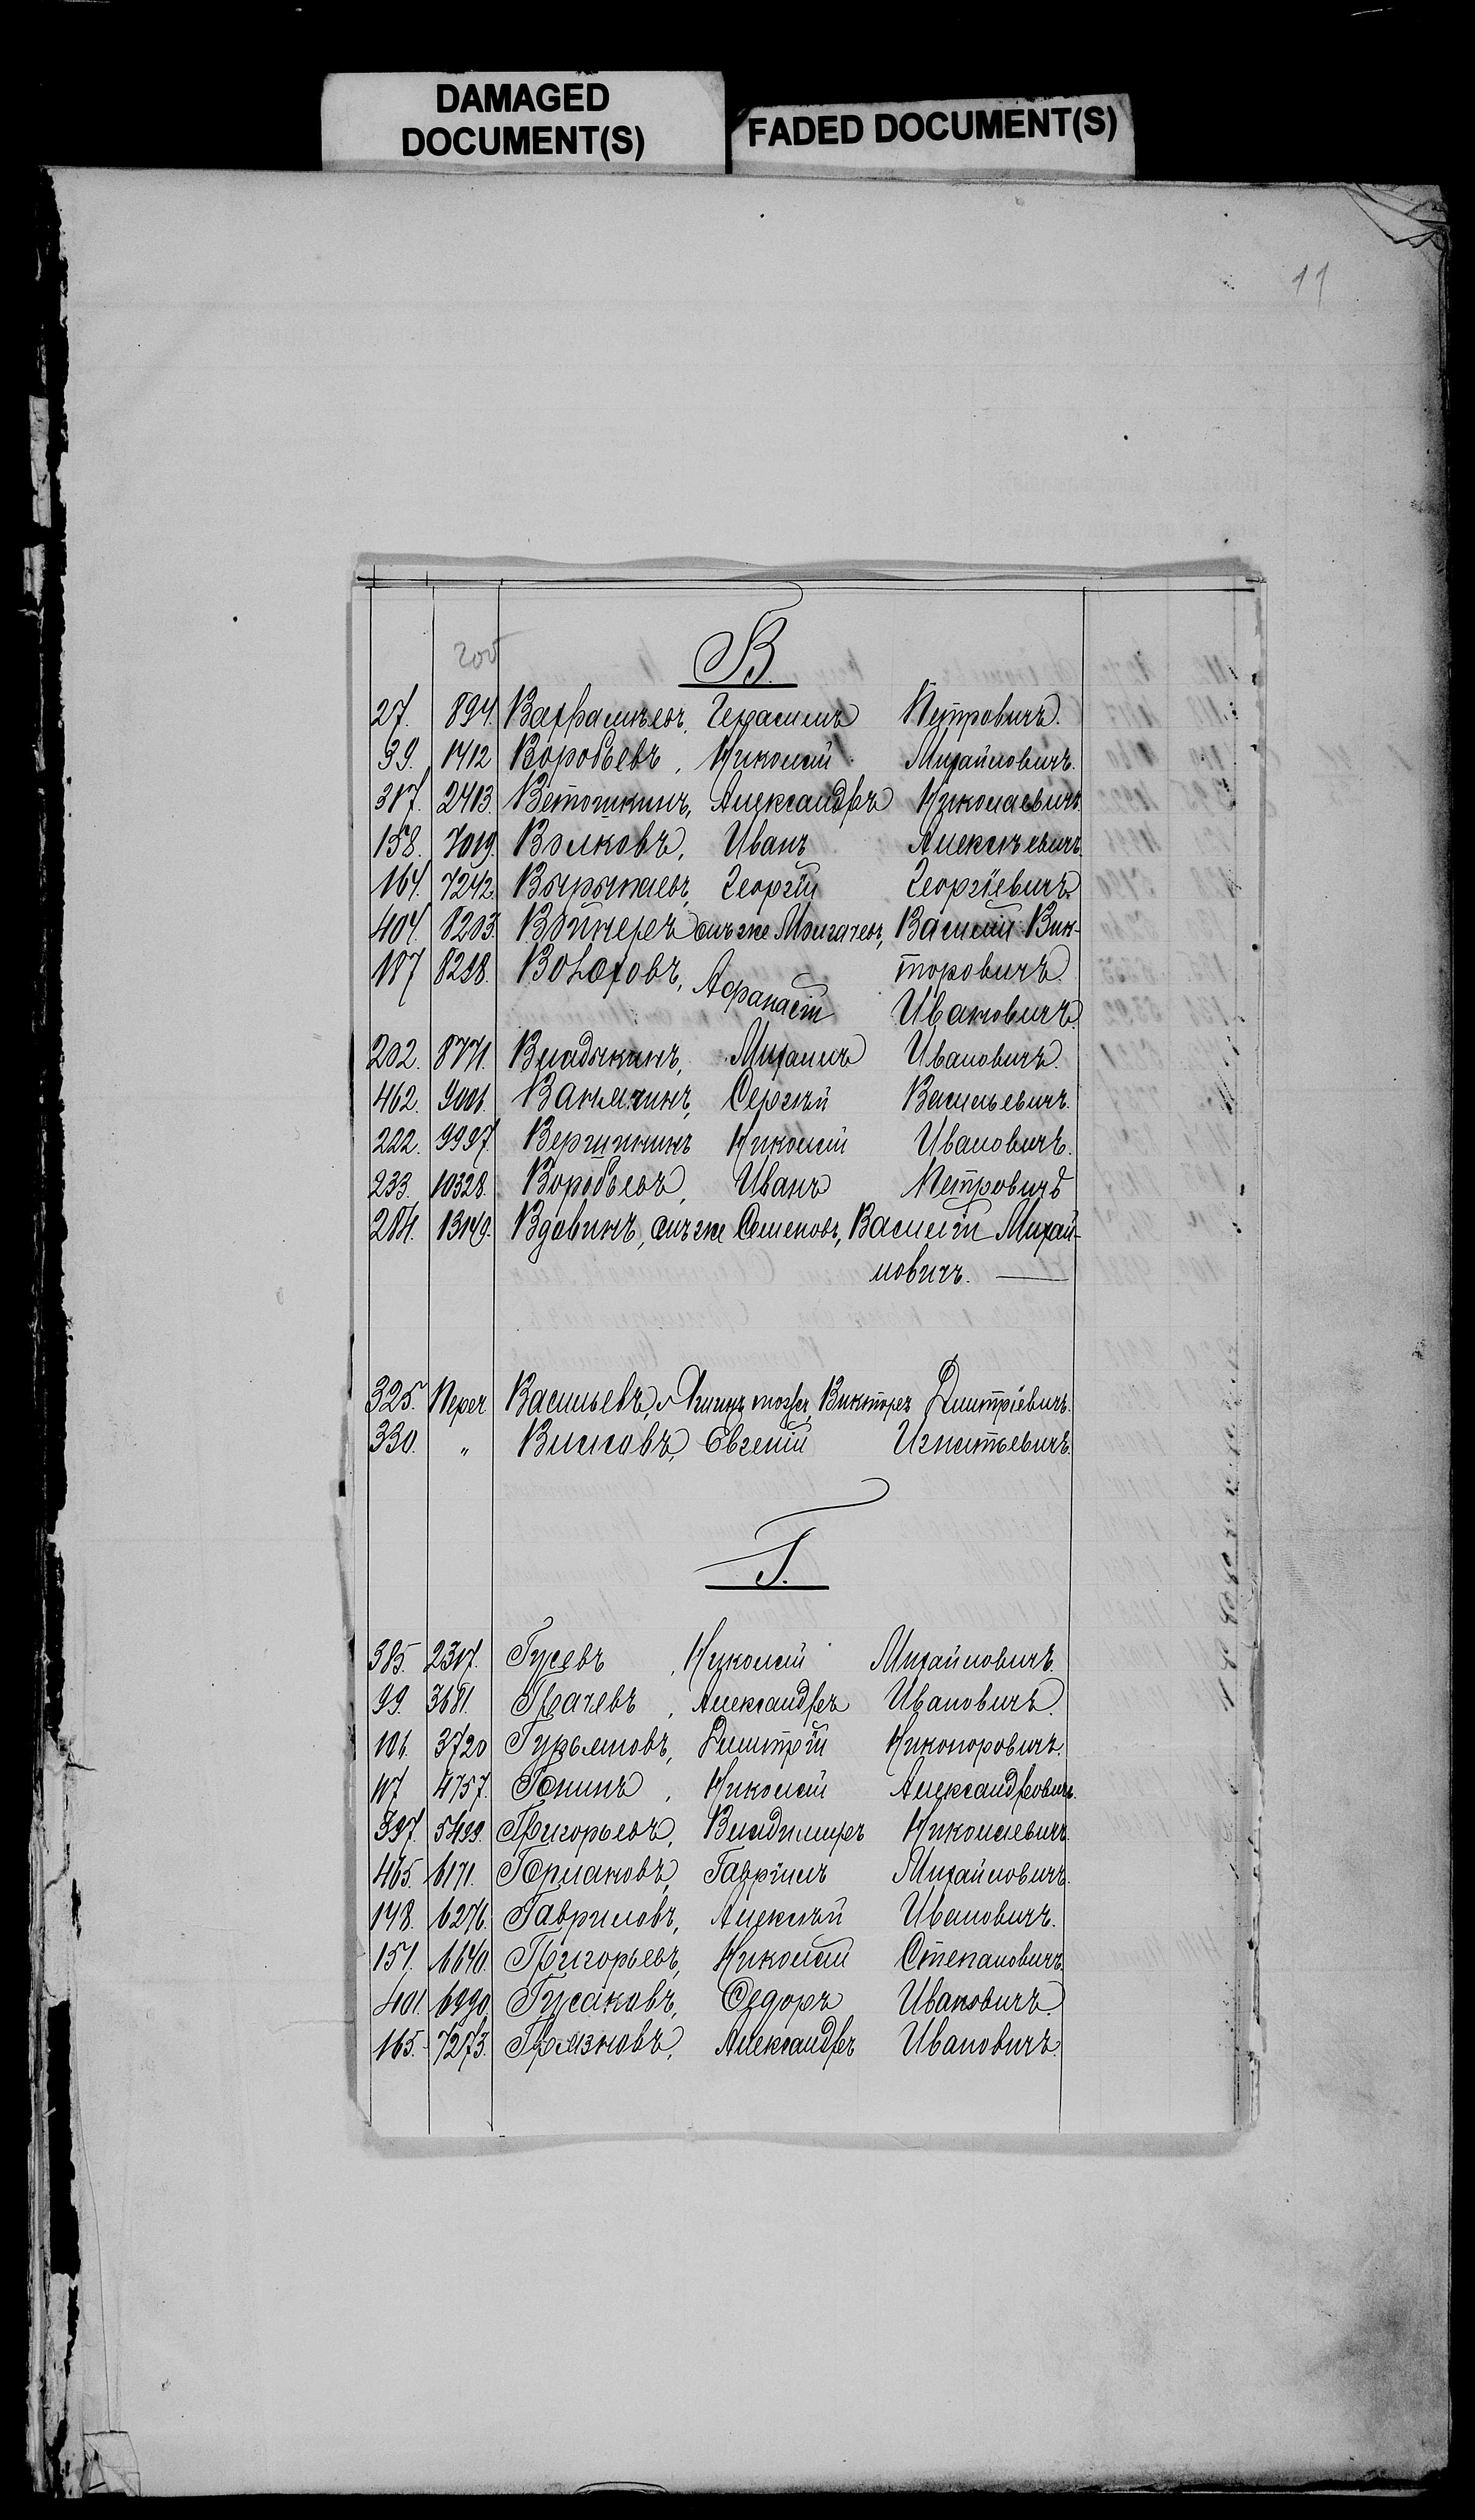 DAMAGED
DOCUMENT(S)
FADED DOCUMENT(S)
11
В.
27. 894. Варфаламѣевъ, Герасимъ Петровичъ.
39. 1412 Воробьевъ, Николай Михайловичъ.
317. 2413. Ветошкинъ, Александръ Николаевичъ.
158. 7019. Волковъ, Иванъ Алексѣевичъ.
164. 7242. Георгій Георгіевичъ.
404. 8203. Войнеръ онъ же Василій Вик-
187 8298. Афанасій торовичъ.
Ивановичъ.
202. 8771. Владыкинъ, Михаилъ Ивановичъ.
462. 9001. Сергѣй Васильевичъ.
222. 9997. Вершининъ Николай Ивановичъ.
233. 10328. Воробьевъ, Иванъ Петровичъ
284. 13149. Вдовинъ, онъ же Семеновъ, Василій Михай-
ловичъ.
325. Переч Васильевъ, тожъ, Викторъ Дмитріевичъ.
330. " Власовъ, Евгеній Игнатьевичъ.
Г.
385. 2317. Гусевъ, Николай Михайловичъ.
99. 3681. Грачевъ, Александръ Ивановичъ.
106. 3720 Гурьяновъ, Дмитрій Никоноровичъ.
117 4757. Гонинъ, Николай Александровичъ.
397. 5499. Григорьевъ, Владимиръ Николаевичъ.
465. 6171. Гормаковъ, Гавріилъ Михайловичъ.
148. 6276. Гавриловъ, Алексѣй Ивановичъ.
151. 6640. Григорьевъ, Николай Степановичъ.
401. 6990. Гусаковъ, Ѳедоръ Ивановичъ.
165. 7273. Грязновъ, Александръ Ивановичъ.